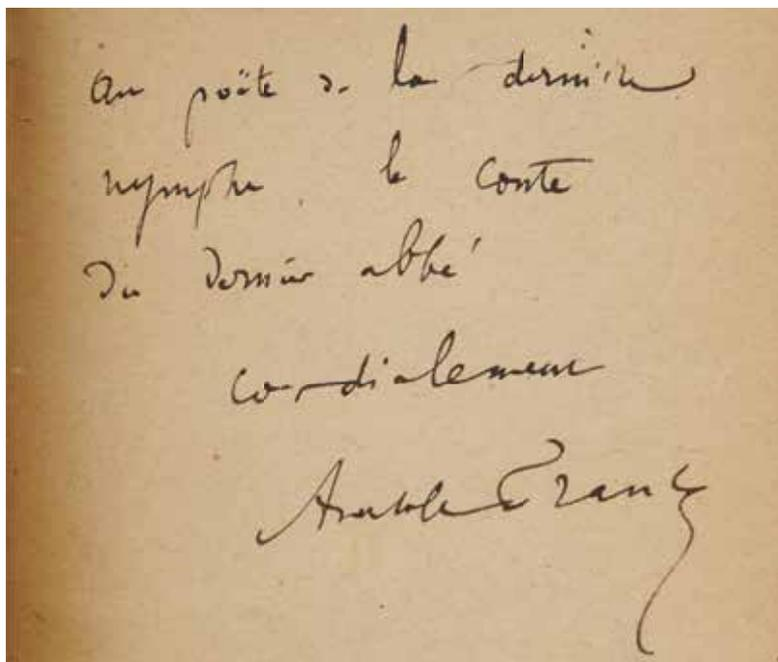 au poëte de la dernière
nymphe, le conte
du dernier abbé
cordialement
Anatole France